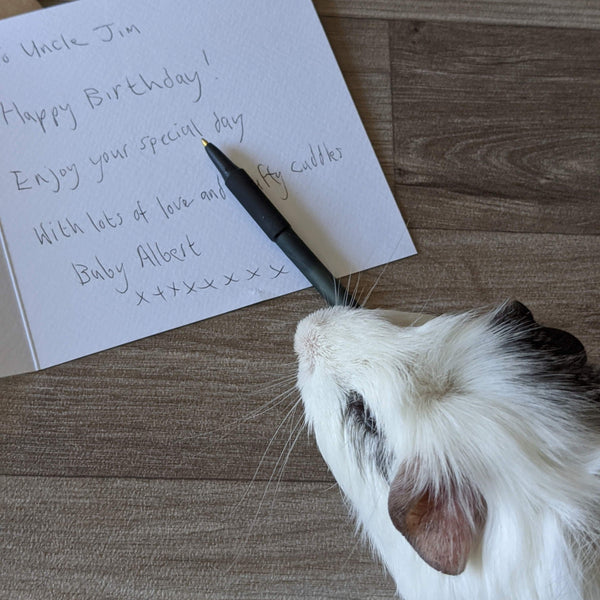 o Uncle Jim
Happy Birthday!
Enjoy your special day
With lots of love and fty cuddles
Baby Albert
x+xxxxxx